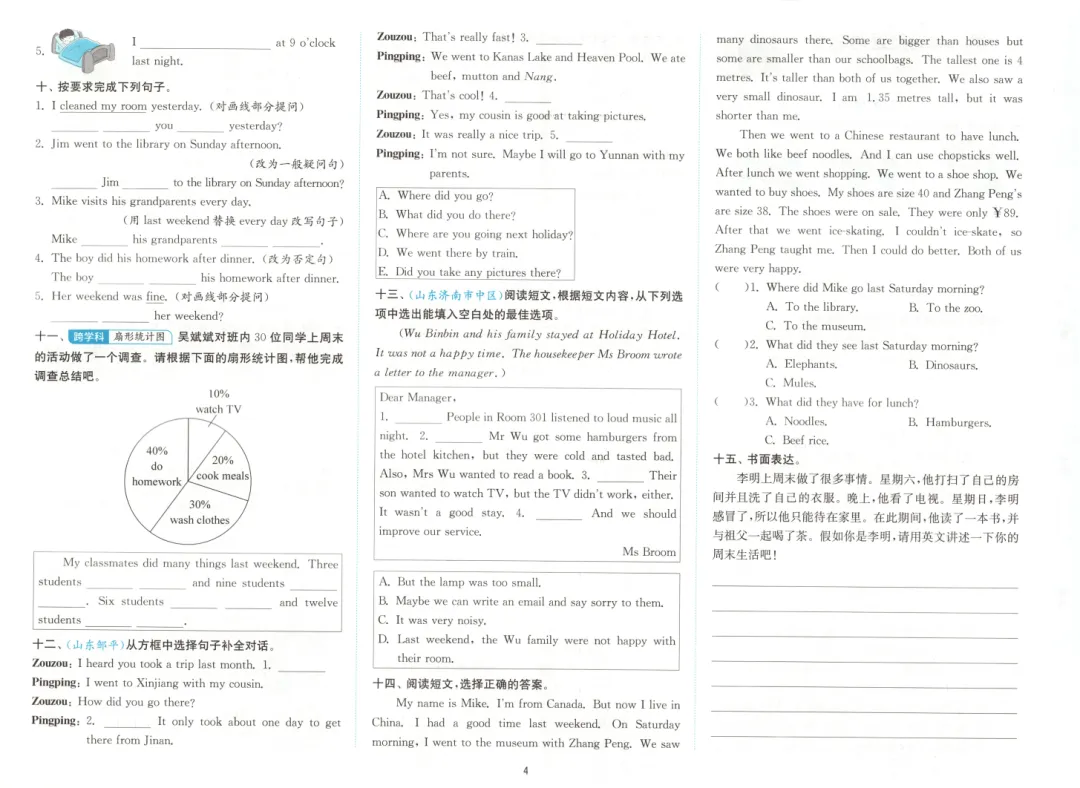 5. I ____________ at 9 o'clock
last night.
十、按要求完成下列句子。
1. I cleaned my room yesterday. (对画线部分提问)
______ ______ you ______ yesterday?
2. Jim went to the library on Sunday afternoon.
(改为一般疑问句)
______ Jim ______ to the library on Sunday afternoon?
3. Mike visits his grandparents every day.
(用 last weekend 替换 every day 改写句子)
Mike ______ his grandparents ______ ______.
4. The boy did his homework after dinner. (改为否定句)
The boy ______ ______ his homework after dinner.
5. Her weekend was fine. (对画线部分提问)
______ ______ her weekend?
十一、跨学科 扇形统计图 吴斌斌对班内 30 位同学上周末
的活动做了一个调查。请根据下面的扇形统计图,帮他完成
调查总结吧。
10%
watch TV
40%
do
homework
20%
cook meals
30%
wash clothes
My classmates did many things last weekend. Three
students ______ ______ and nine students ______
______. Six students ______ ______ and twelve
students ______ ______.
十二、(山东邹平)从方框中选择句子补全对话。
Zouzou: I heard you took a trip last month. 1. ______
Pingping: I went to Xinjiang with my cousin.
Zouzou: How did you go there?
Pingping: 2. ______ It only took about one day to get
there from Jinan.
Zouzou: That's really fast! 3. ______
Pingping: We went to Kanas Lake and Heaven Pool. We ate
beef, mutton and Nang.
Zouzou: That's cool! 4. ______
Pingping: Yes, my cousin is good at taking pictures.
Zouzou: It was really a nice trip. 5. ______
Pingping: I'm not sure. Maybe I will go to Yunnan with my
parents.
A. Where did you go?
B. What did you do there?
C. Where are you going next holiday?
D. We went there by train.
E. Did you take any pictures there?
十三、(山东济南市中区)阅读短文,根据短文内容,从下列选
项中选出能填入空白处的最佳选项。
(Wu Binbin and his family stayed at Holiday Hotel.
It was not a happy time. The housekeeper Ms Broom wrote
a letter to the manager.)
Dear Manager,
1. ______ People in Room 301 listened to loud music all
night. 2. ______ Mr Wu got some hamburgers from
the hotel kitchen, but they were cold and tasted bad.
Also, Mrs Wu wanted to read a book. 3. ______ Their
son wanted to watch TV, but the TV didn't work, either.
It wasn't a good stay. 4. ______ And we should
improve our service.
Ms Broom
A. But the lamp was too small.
B. Maybe we can write an email and say sorry to them.
C. It was very noisy.
D. Last weekend, the Wu family were not happy with
their room.
十四、阅读短文,选择正确的答案。
My name is Mike. I'm from Canada. But now I live in
China. I had a good time last weekend. On Saturday
morning, I went to the museum with Zhang Peng. We saw
many dinosaurs there. Some are bigger than houses but
some are smaller than our schoolbags. The tallest one is 4
metres. It's taller than both of us together. We also saw a
very small dinosaur. I am 1.35 metres tall, but it was
shorter than me.
Then we went to a Chinese restaurant to have lunch.
We both like beef noodles. And I can use chopsticks well.
After lunch we went shopping. We went to a shoe shop. We
wanted to buy shoes. My shoes are size 40 and Zhang Peng's
are size 38. The shoes were on sale. They were only ¥89.
After that we went ice-skating. I couldn't ice-skate, so
Zhang Peng taught me. Then I could do better. Both of us
were very happy.
( )1. Where did Mike go last Saturday morning?
A. To the library. B. To the zoo.
C. To the museum.
( )2. What did they see last Saturday morning?
A. Elephants. B. Dinosaurs.
C. Mules.
( )3. What did they have for lunch?
A. Noodles. B. Hamburgers.
C. Beef rice.
十五、书面表达。
李明上周末做了很多事情。星期六,他打扫了自己的房
间并且洗了自己的衣服。晚上,他看了电视。星期日,李明
感冒了,所以他只能待在家里。在此期间,他读了一本书,并
与祖父一起喝了茶。假如你是李明,请用英文讲述一下你的
周末生活吧!
4